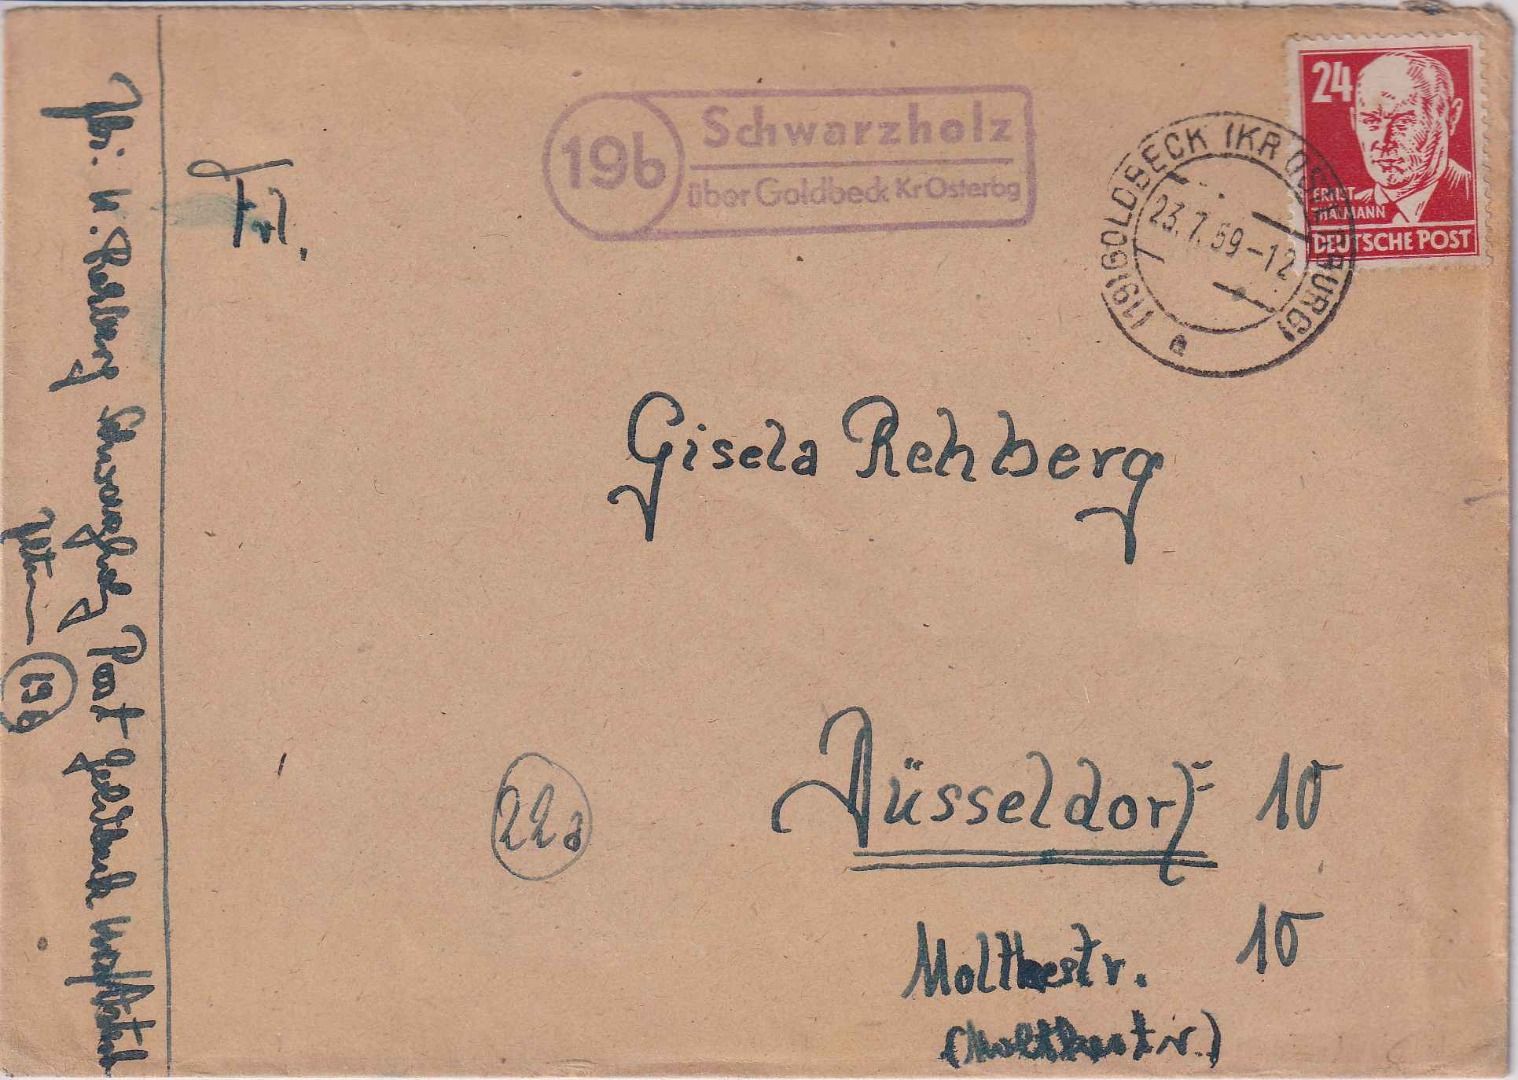 19b
Schwarzholz
über Goldbeck Kr Osterbg
24
ERNST
THÄLMANN
DEUTSCHE POST
(19) GOLDBECK (KR OSTERBURG)
23.7.59-12
a
Frl.
Gisela Rehberg
22a
Düsseldorf 10
Moltkestr. 10
(Moltkestr.)
Rehberg Schwarzholz Post Goldbeck
19b